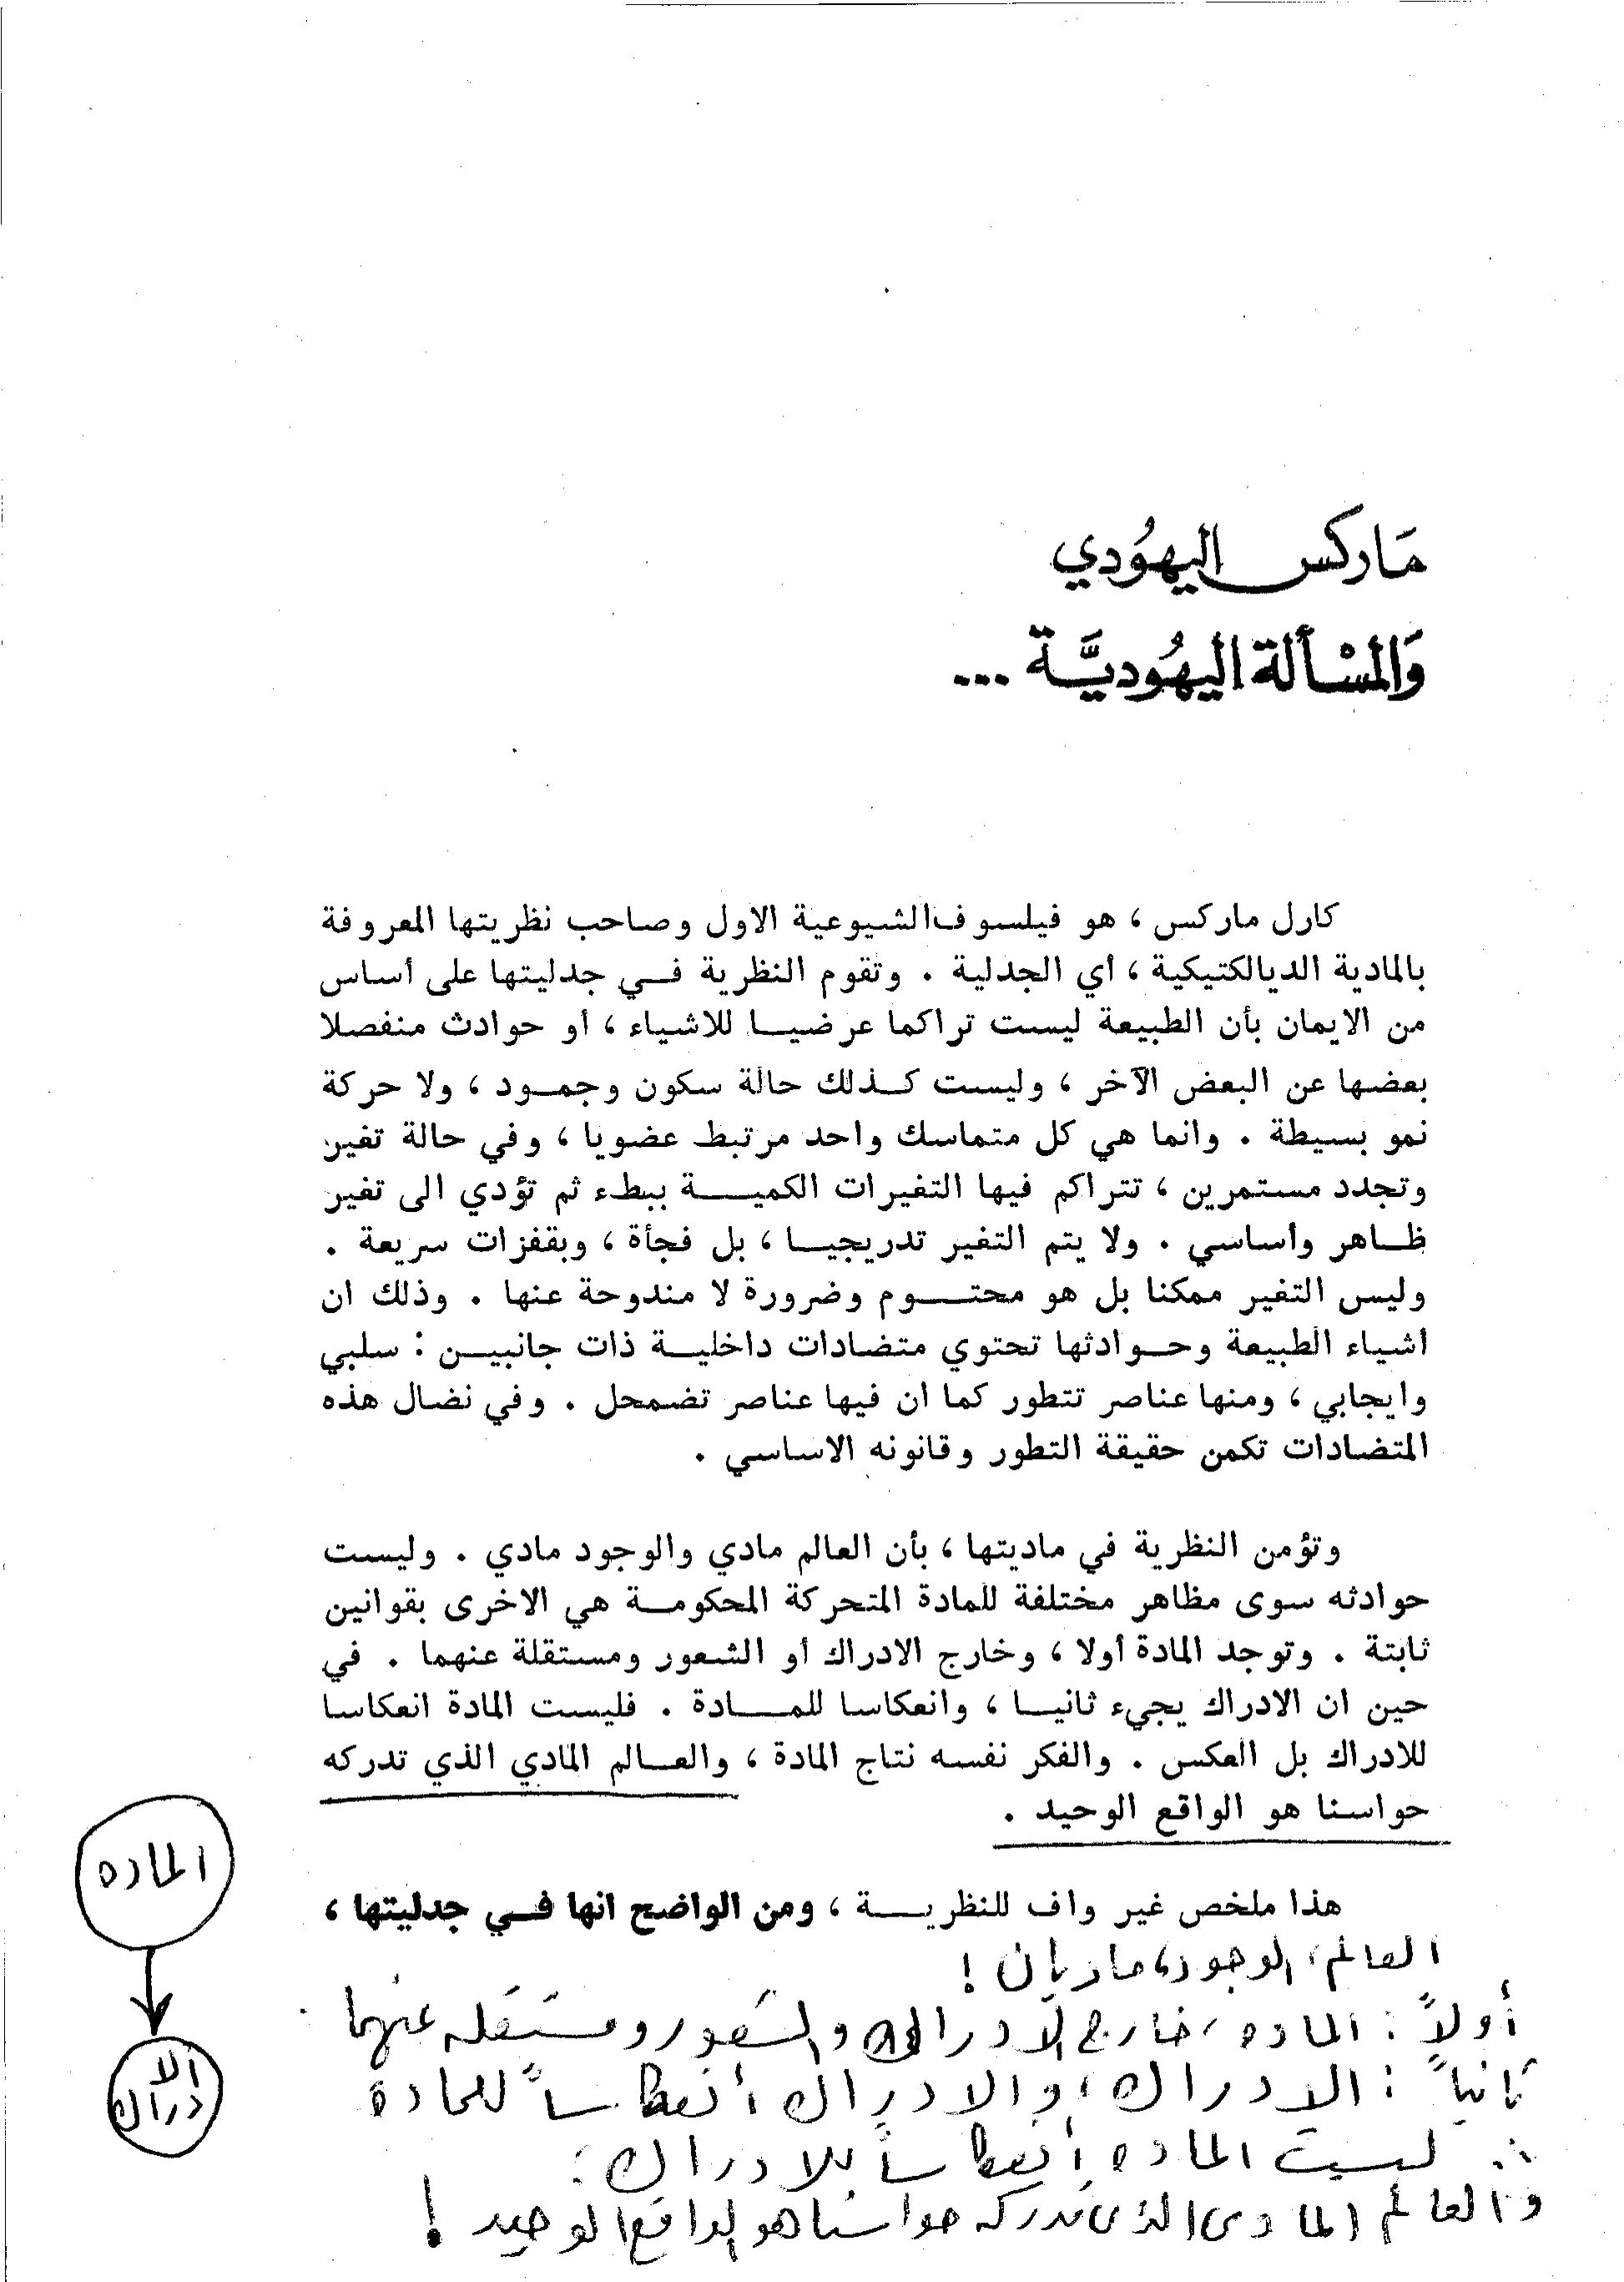 مَاركس اليهُودي
وَالمسْألة اليهُوديَّة ...
كارل ماركس ، هو فيلسوف الشيوعية الاول وصاحب نظريتها المعروفة
بالمادية الديالكتيكية ، أي الجدلية . وتقوم النظرية فـــي جدليتها على أساس
من الايمان بأن الطبيعة ليست تراكما عرضيـــا للاشياء ، أو حوادث منفصلا
بعضها عن البعض الآخر ، وليست كـــذلك حالة سكون وجمـــود ، ولا حركة
نمو بسيطة . وانما هي كل متماسك واحد مرتبط عضويا ، وفي حالة تغير
وتجدد مستمرين ، تتراكم فيها التغيرات الكميـــة ببطء ثم تؤدي الى تغير
ظـــاهر وأساسي . ولا يتم التغير تدريجيـــا ، بل فجأة ، وبقفزات سريعة .
وليس التغير ممكنا بل هو محتـــوم وضرورة لا مندوحة عنها . وذلك ان
اشياء الطبيعة وحـــوادثها تحتوي متضادات داخليـــة ذات جانبيـــن : سلبي
وايجابي ، ومنها عناصر تتطور كما ان فيها عناصر تضمحل . وفي نضال هذه
المتضادات تكمن حقيقة التطور وقانونه الاساسي .
وتؤمن النظرية في ماديتها ، بأن العالم مادي والوجود مادي . وليست
حوادثه سوى مظاهر مختلفة للمادة المتحركة المحكومـــة هي الاخرى بقوانين
ثابتة . وتوجد المادة أولا ، وخارج الادراك أو الشعور ومستقلة عنهما . في
حين ان الادراك يجيء ثانيـــا ، وانعكاسا للمـــادة . فليست المادة انعكاسا
للادراك بل العكس . والفكر نفسه نتاج المادة ، والعـــالم المادي الذي تدركه
حواسنا هو الواقع الوحيد .
الماده
هذا ملخص غير واف للنظريـــة ، ومن الواضح انها فـــي جدليتها ،
العالم، الوجود، ماديان !
أولاً : الماده ، خارج الادراك والشعور ومستقله عنهما
الا
دراك
ثانياً : الادراك ، والادراك أنعكاساً للمادة
∴ ليست الماده إنعكاساً للادراك :
والعالم المادى الذى تدركه حواسنا هو الواقع الوحيد !